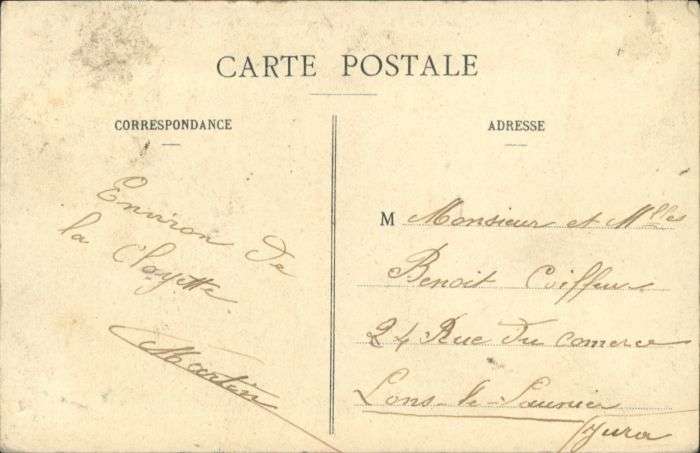 CARTE POSTALE
CORRESPONDANCE
Environ de
la Clayette
Martin
ADRESSE
M Monsieur et Mlles
Benoit Coiffeur
24 Rue du Comerce
Lons-le-Saunier
Jura